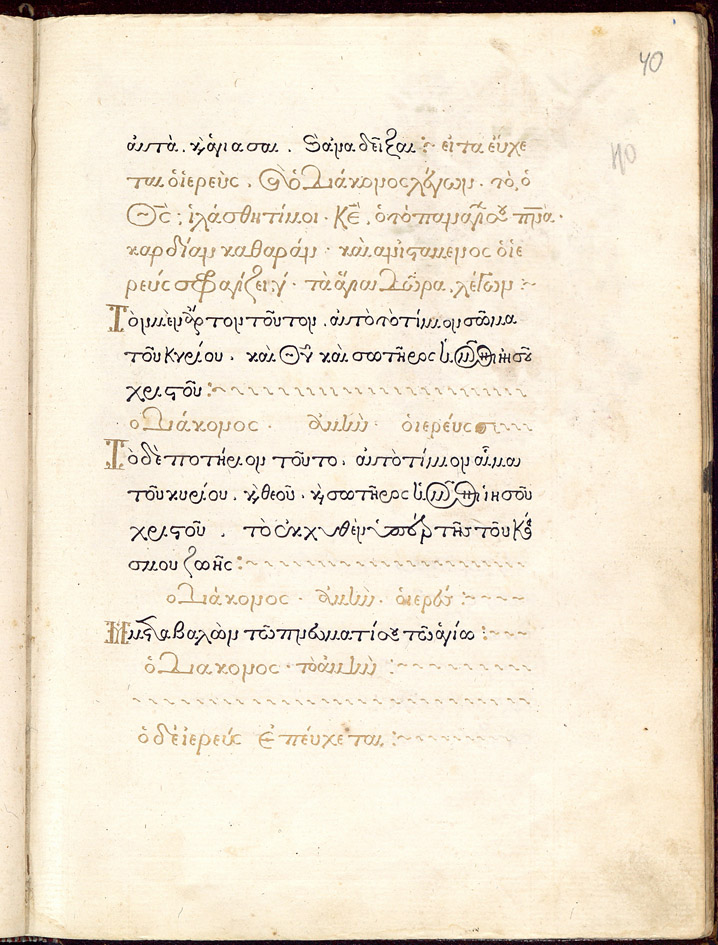 40
40
αυτά, κ̀ ἁγιάσαι, κ̀ ἀναδεῖξαι :~ εἶτα εὔχε
ται ὁ ἱερεὺς, κ̀ ὁ Διάκονος λέγων · τὸ, ὁ
Θ̅ς̅ ; ἱλάσθητί μοι · Κ̅Ε̅, ὁ τὸ πανάγιον π̅ν̅α̅ ·
καρδίαν καθαρὰν · καὶ ἀνιϛάμενος ὁ ἱε
ρεύς σφραγίζει γ΄ · τὰ ἅγια Δῶρα, λέγων :~
Τὸν μὲν ἄρτον τοῦτον, αὐτὸ τὸ τίμιον σῶμα
τοῦ Κυρίου, καὶ Θ̅υ̅ καὶ σωτῆρος ἡμῶν ἰησοῦ
χριϛοῦ :~
ὁ Διάκονος · ἀμὴν · ὁ ἱερεύς
Τὸ δὲ ποτήριον τοῦτο, αὐτὸ τὸ τίμιον αἷμα
τοῦ κυρίου, κ̀ θεοῦ, κ̀ σωτῆρος ἡμῶν ἰησοῦ
χριϛοῦ, τὸ ἐκχυθὲν ὑπὲρ τῆς τοῦ κό
σμου ζωῆς :~
ὁ Διάκονος · ἀμὴν · ὁ ἱερεύς :~
Μεταβαλὼν τῷ πνεύματί σου τῷ ἁγίῳ :~
ὁ Διάκονος · τὸ ἀμὴν :~
ὁ δὲ ἱερεύς ἐπεύχεται, :~